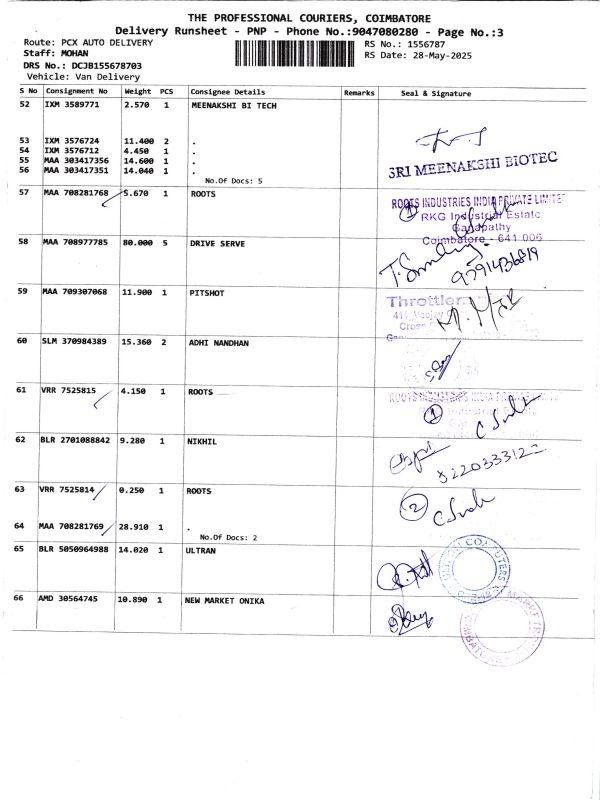 THE PROFESSIONAL COURIERS, COIMBATORE
Delivery Runsheet - PNP - Phone No.:9047080280 - Page No.:3
Route: PCX AUTO DELIVERY
RS No.: 1556787
Staff: MOHAN
RS Date: 28-May-2025
DRS No.: DCJB155678703
Vehicle: Van Delivery
S No Consignment No Weight PCS Consignee Details Remarks Seal & Signature
52 IXM 3589771 2.570 1 MEENAKSHI BI TECH
53 IXM 3576724 11.400 2 .
54 IXM 3576712 4.450 1 .
55 MAA 303417356 14.600 1 .
56 MAA 303417351 14.040 1 .
No.Of Docs: 5
SRI MEENAKSHI BIOTEC
57 MAA 708281768 5.670 1 ROOTS
ROOTS INDUSTRIES INDIA PRIVATE LIMITE
1 RKG Industrial Estate
Ganapathy
Coimbatore - 641 006
58 MAA 708977785 80.000 5 DRIVE SERVE
9791436819
59 MAA 709307068 11.900 1 PITSHOT
Throttler
60 SLM 370984389 15.360 2 ADHI NANDHAN
61 VRR 7525815 4.150 1 ROOTS
ROOTS INDUSTRIES INDIA
1
62 BLR 2701088842 9.280 1 NIKHIL
63 VRR 7525814 0.250 1 ROOTS
2
64 MAA 708281769 28.910 1 .
No.Of Docs: 2
65 BLR 5050964988 14.020 1 ULTRAN
COMPUTERS
66 AMD 30564745 10.890 1 NEW MARKET ONIKA